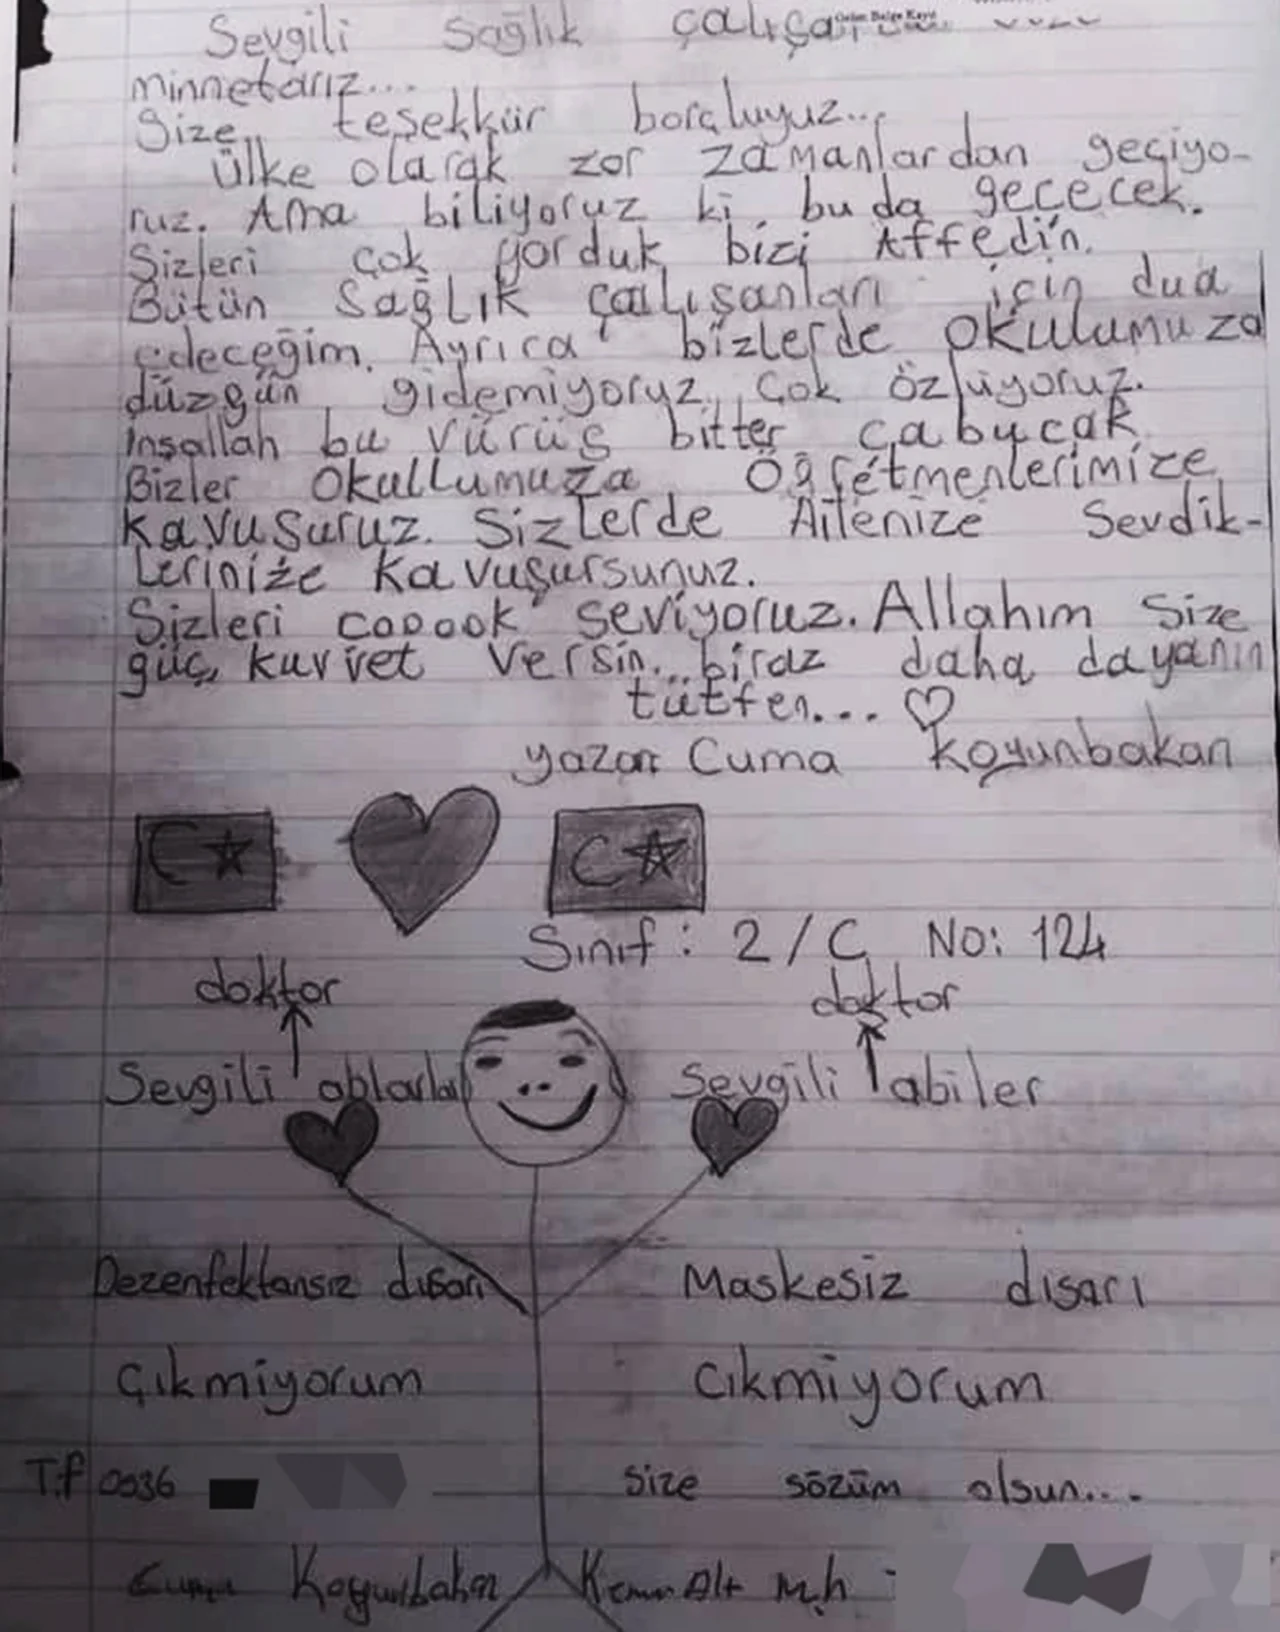 Sevgili sağlık
minnetarız...
Size teşekkür borçluyuz...
ülke olarak zor zamanlardan geçiyo-
ruz. Ama biliyoruz ki bu da geçecek.
Sizleri çok yorduk bizi Affedin.
Bütün sağlık çalışanları için dua
edeceğim. Ayrıca bizlerde okulumuza
düzgün gidemiyoruz. Çok özlüyoruz.
inşallah bu vürüs bitter çabucak
Bizler okullumuza Öğretmenlerimize
kavuşuruz. Sizlerde Ailenize Sevdik-
lerinize kavuşursunuz.
Sizleri cooook seviyoruz. Allahım size
güç, kuvvet versin... biraz daha dayanın
lütfen... ♡
yazan Cuma koyunbakan
Sınıf : 2/C No: 124
doktor doktor
Sevgili ablarlar Sevgili abiler
Dezenfektansız dışarı Maskesiz dısarı
Çıkmiyorum cıkmiyorum
T.f 0536 size sözüm olsun...
Cuma Koyunbakan Alt mh